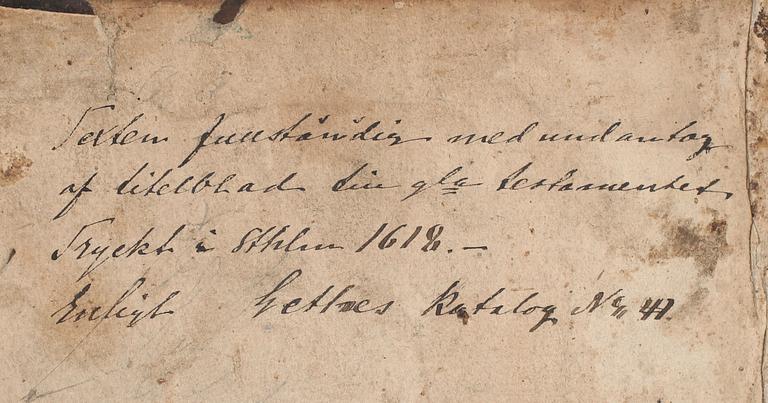 Texten fullständig med undantag
af titelblad till gla testamentet
Tryckt i Sthlm 1618.—
Enligt Gethes Katalog No 41.